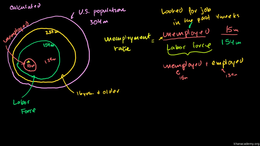 Calculated
U.S. population
304m
Unemployed
Labor
Force
16 or older
Unemployment
rate
=
Looked for job
in the past 4 weeks
Unemployed
Labor force
15m
154m
unemployed + employed
khanacademy.org